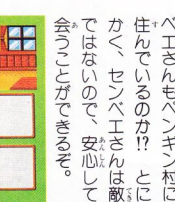 ベエさんもペンギン村に
住んでいるのか!?　とに
かく、センベエさんは敵
ではないので、安心して
会うことができるぞ。